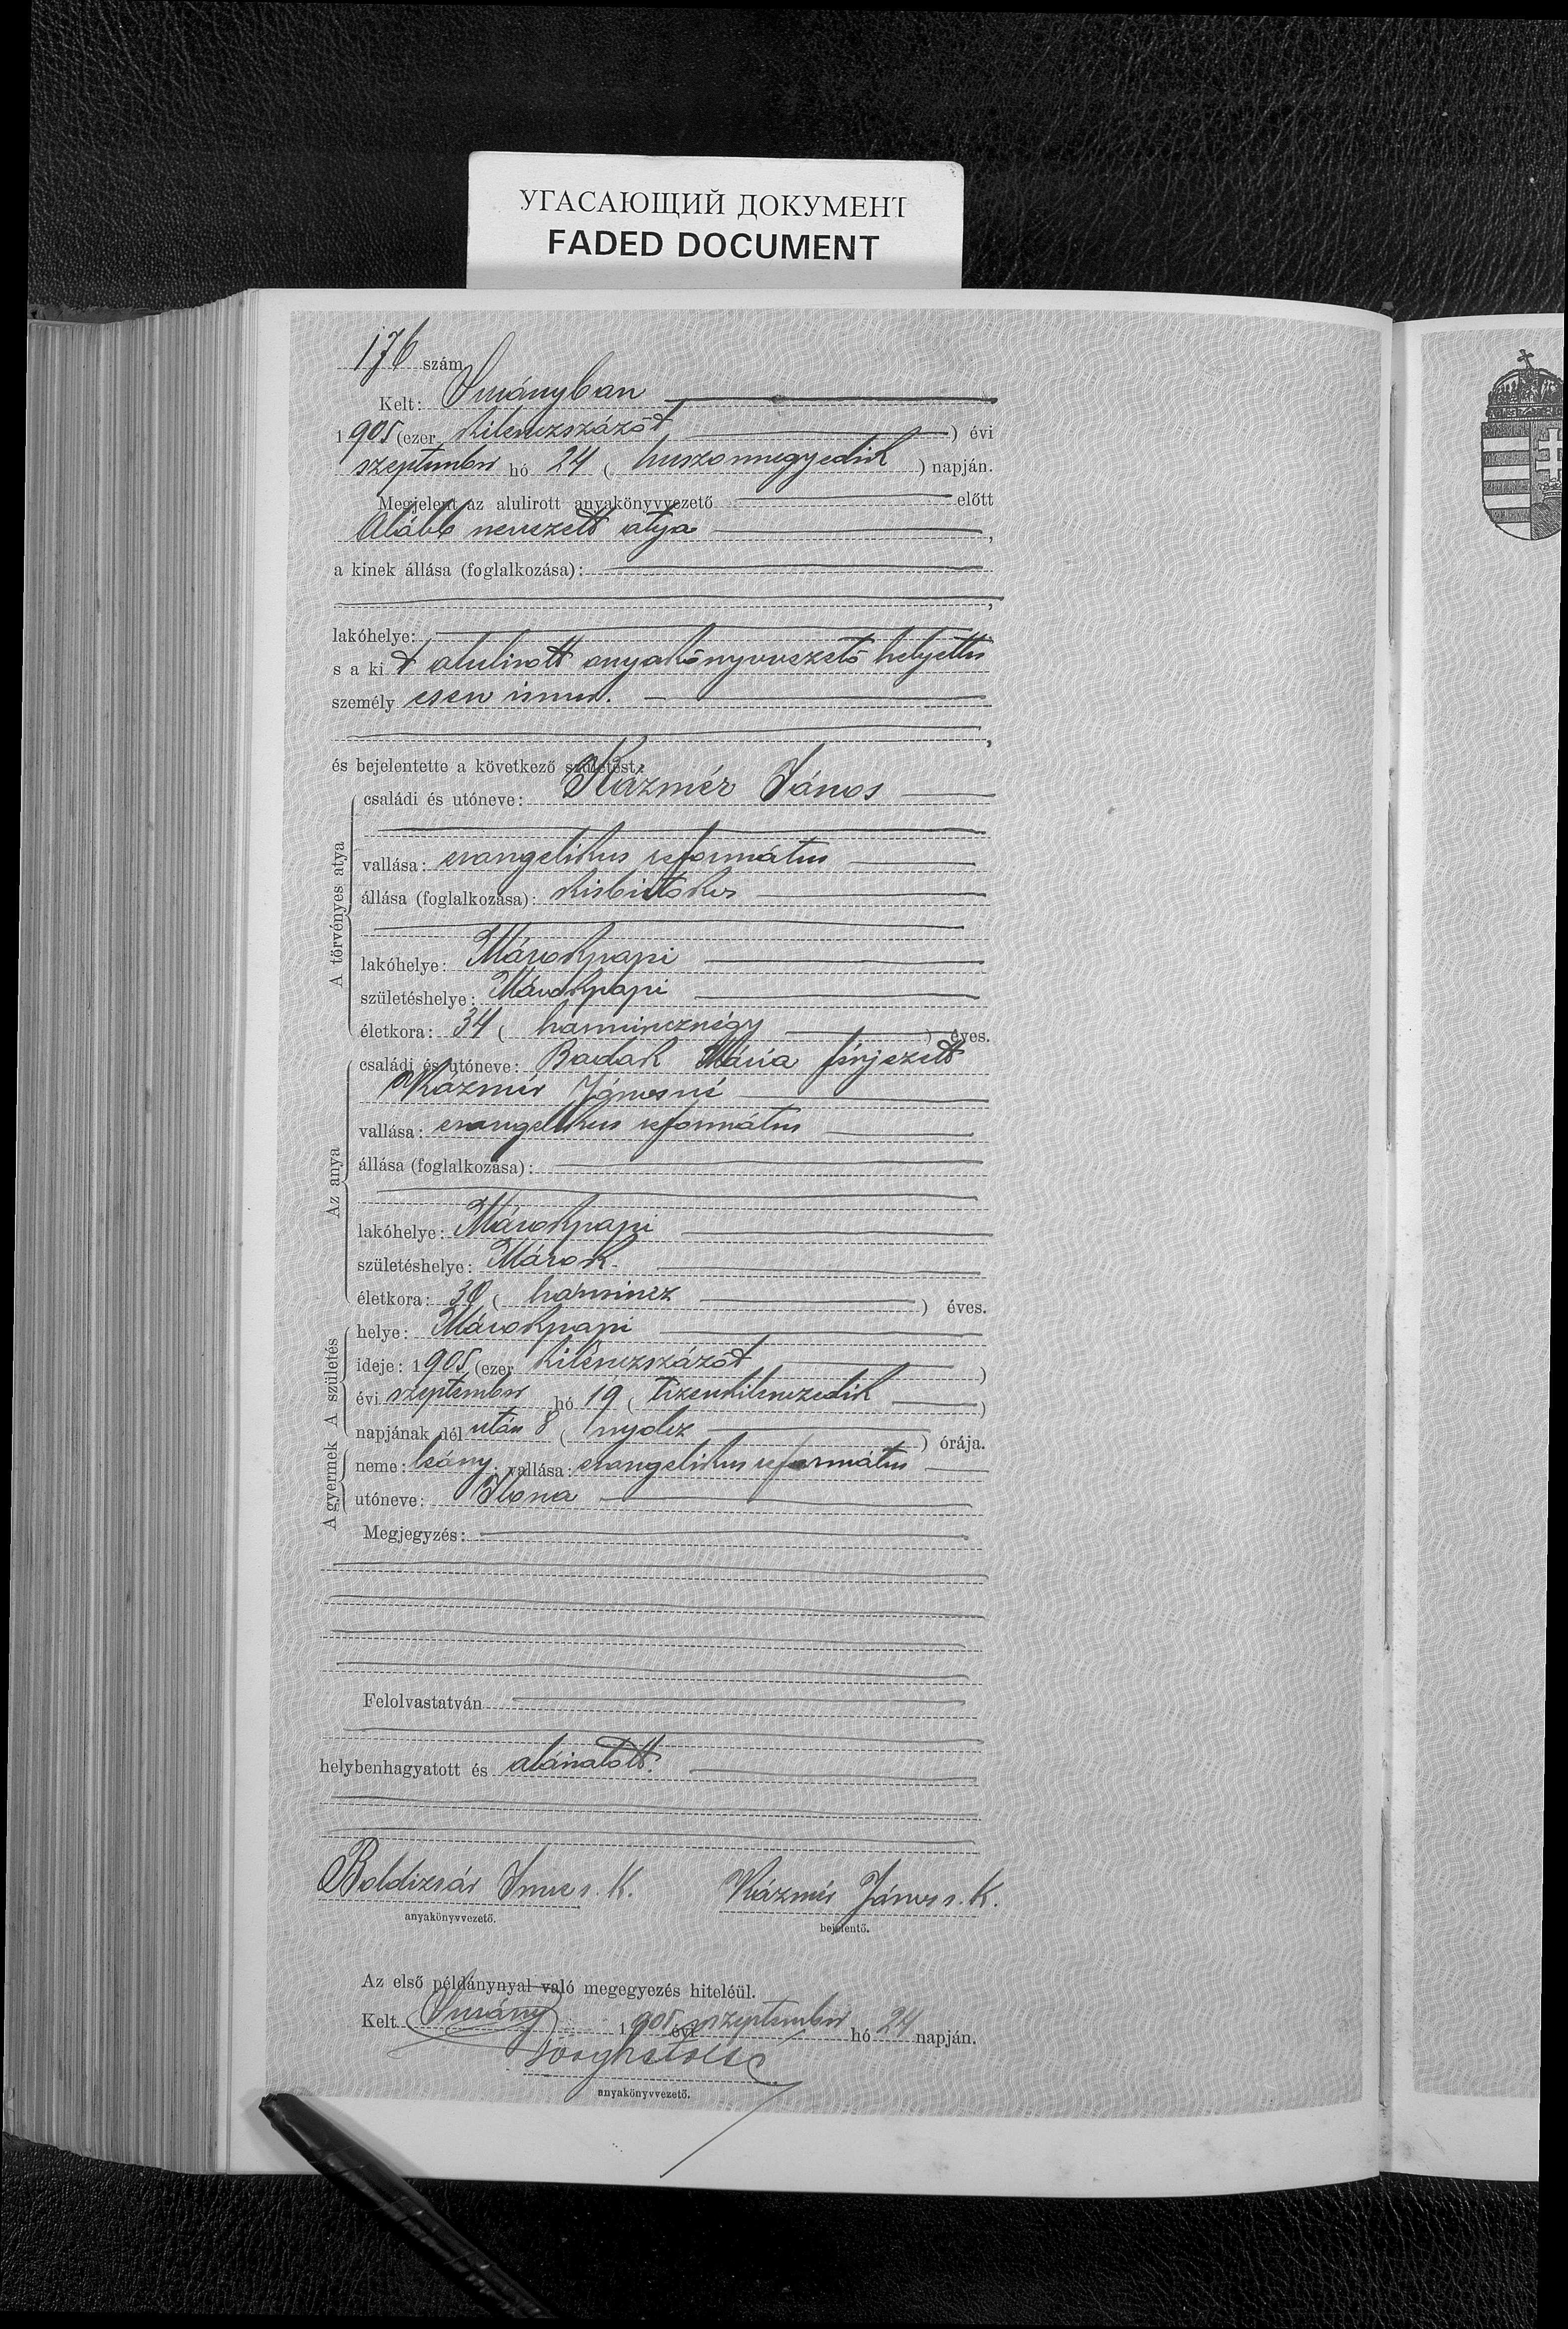 УГАСАЮЩИЙ ДОКУМЕНТ
FADED DOCUMENT
176 szám
Kelt: Surányban
1905 (ezer kilenczszázöt) évi
szeptember hó 24 ( huszonnegyedik ) napján.
Megjelent az alulirott anyakönyvvezető előtt
Alább nevezett atya,
a kinek állása (foglalkozása):
,
lakóhelye:
s a kit alulirott anyakönyvvezető helyettes
személyesen ismer.
,
és bejelentette a következő születést:
A törvényes atya
családi és utóneve: Kázmér János
vallása: evangelikus református
állása (foglalkozása): kisbirtokos
lakóhelye: Márokpapi
születéshelye: Márokpapi
életkora: 34 ( harmincznégy ) éves.
Az anya
családi és utóneve: Badak Mária férjezett
Kázmér Jánosné
vallása: evangelikus református
állása (foglalkozása):
lakóhelye: Márokpapi
születéshelye: Márok
életkora: 30 ( harmincz ) éves.
A születés
helye: Márokpapi
ideje: 1905 (ezer kilenczszázöt )
évi szeptember hó 19 ( tizenkilenczedik )
napjának dél után 8 ( nyolcz ) órája.
A gyermek
neme: leány; vallása: evangelikus református
utóneve: Ilona
Megjegyzés:
Felolvastatván
helybenhagyatott és aláiratott.
Boldizsár Imre s. k. Kázmér János s. k.
anyakönyvvezető. bejelentő.
Az első példánynyal való megegyezés hiteléül.
Kelt Surány 1905 évi szeptember hó 24 napján.
anyakönyvvezető.